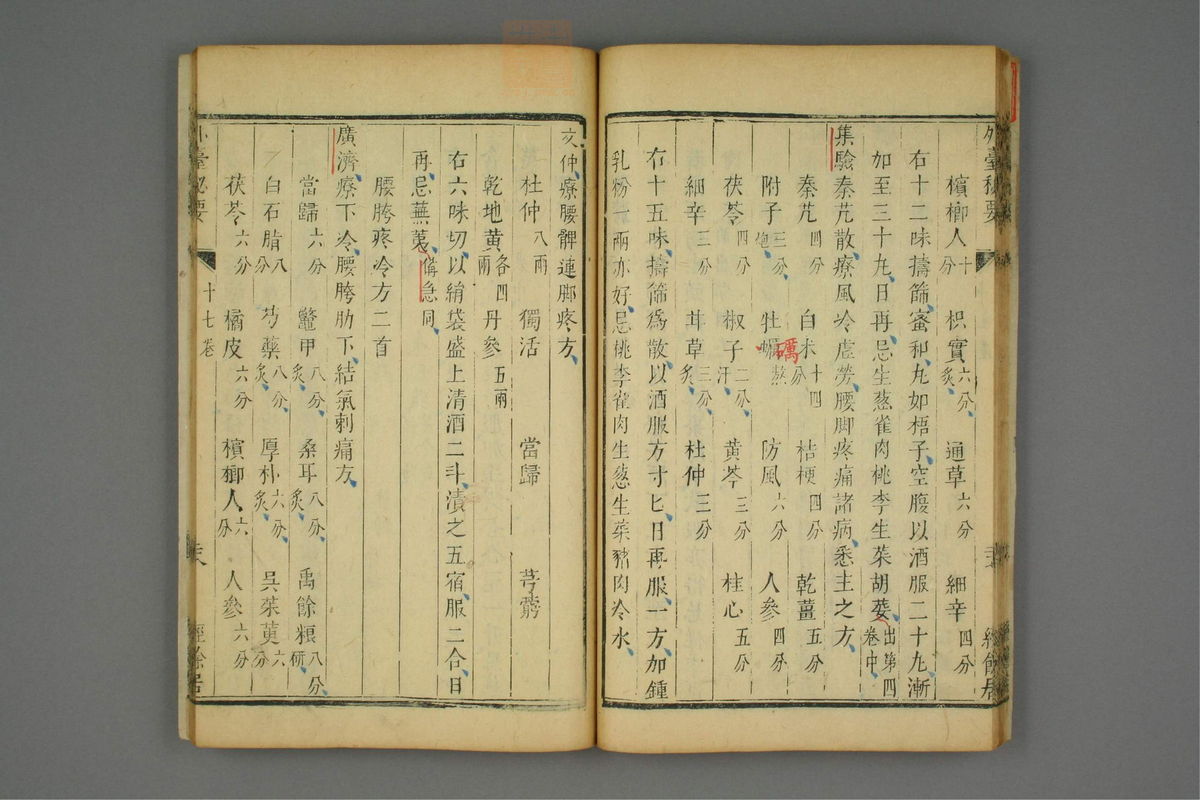 檳榔人十分 枳實六分炙 通草六分 細辛四分
右十二味擣篩蜜和丸如梧子空腹以酒服二十丸漸
如至三十丸日再忌生葱雀肉桃李生菜胡荽出第四卷中
集驗秦艽散療風冷虛勞腰脚疼痛諸病悉主之方
秦艽四分 白朮十四分 桔梗四分 乾薑五分
附子三分炮 牡蠣熬 防風六分 人參四分
茯苓四分 椒子二分汗 黄芩三分 桂心五分
細辛三分 茸草三分炙 杜仲三分
右十五味擣篩爲散以酒服方寸匕日再服一方加鍾
乳粉一兩亦好忌桃李雀肉生葱生菜猪肉冷水
外臺秘要
文仲療腰髀連脚疼方
杜仲八兩 獨活 當歸 芎藭
乾地黄各四兩 丹參五兩
右六味切以絹袋盛上清酒二斗漬之五宿服二合日
再忌蕪荑備急同
腰胯疼冷方二首
廣濟療下冷腰胯肋下結氣刺痛方
當歸六分 鼈甲八分炙 桑耳八分炙 禹餘粮八分研
白石脂八分 芍藥八分炙 厚朴六分炙 吳茱萸六分
茯苓六分 橘皮六分 檳榔人六分 人參六分
外臺秘要 十七卷 經餘居